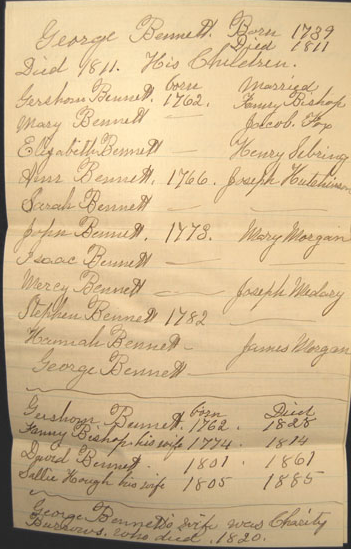 George Bennett. Born 1739
Died 1811
Died 1811. His Children.
born Married
Gershom Bennett. 1762. Fanny Bishop
Mary Bennett — Jacob. Fox
Elizabeth Bennett — Henry Sebring
Ann Bennett. 1766. Joseph Hutchinson
Sarah Bennett — —
John Bennett. 1773. Mary Morgan
Isaac Bennett —
Mercy Bennett — Joseph Medary
Stephen Bennett 1782 —
Hannah Bennett - James Morgan
George Bennett —
born Died
Gershom Bennett. 1762. 1828
Fanny Bishop. his wife 1774. 1814
David Bennett. 1801. 1861
Sallie Hough his wife 1805 1885
George Bennett's wife was Charity
Burrows. who died. 1820.